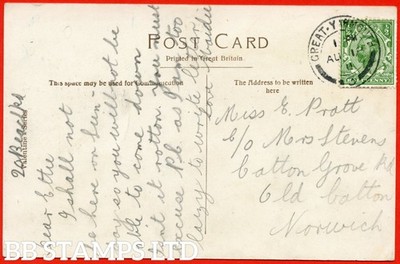 POST CARD
Printed in Great Britain
This space may be used for Communication
The Address to be written
here
GREAT YARMOUTH
AU
Dear Ettie
I shall not
be here on Sun
day so you will not be
able to come down
isn't it rotton. You must
excuse P.C. as I am too
lazy to write letter
Love
Miss E. Pratt
c/o Mrs Stevens
Catton Grove Rd
Old Catton
Norwich
BB STAMPS LTD